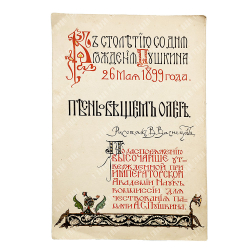 Къ столѣтію со дня
рожденія Пушкина
26 мая 1899 года.
Пѣснь о Вѣщемъ Олегѣ.
Рисунки В. Васнецова
По распоряженію
Высочайше ут-
вержденной при
Императорской
Академіи Наукъ
коммиссіи для
чествованія па-
мяти А.С. Пушкина.